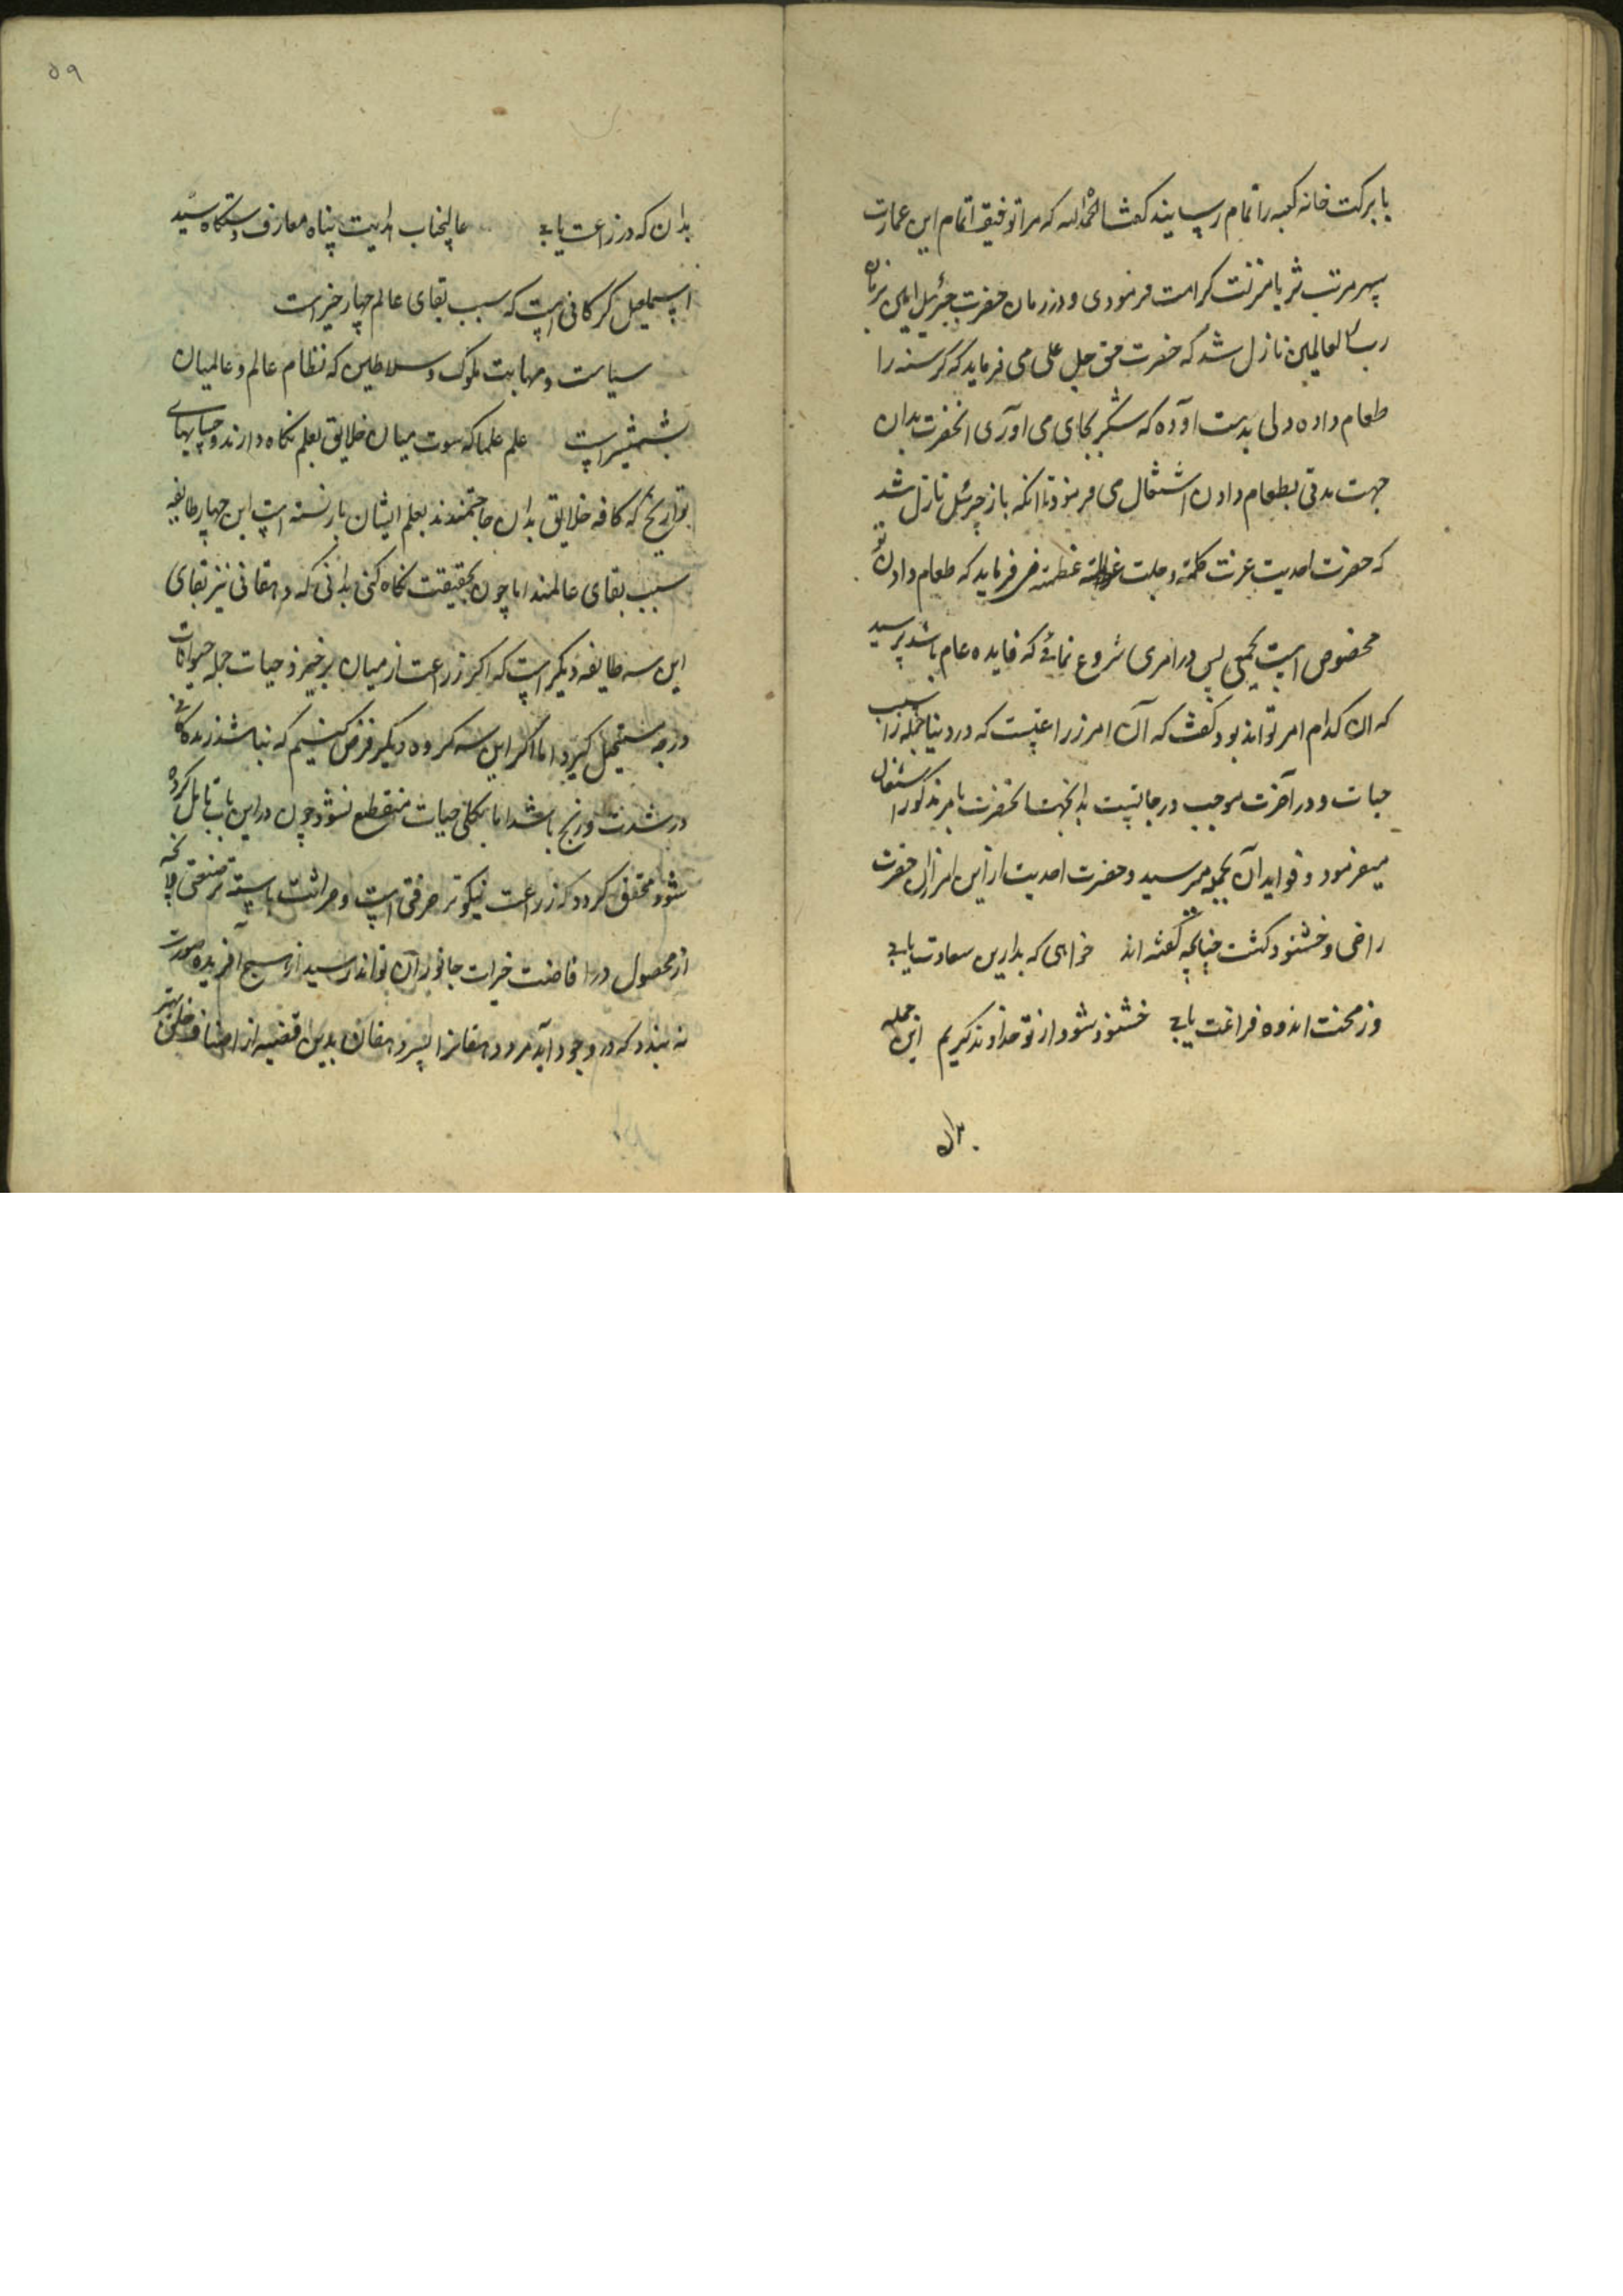 با برکت خانه کعبه را تمام رسانید گفت الحمدلله که مرا توفیق اتمام این عمارت
سپهر مرتبت ثریا منزلت کرامت فرمودی و در زمان حضرت جبرئیل امین بفرمان
رب العالمین نازل شد که حضرت حق جل علی می فرماید که گرسنه را
طعام داده و دلی بدست آورده که شکر بجای می آوری آنحضرت بدان
جهت مدتی بطعام دادن اشتغال می فرمود تا آنکه باز جبرئیل نازل شد
که حضرت احدیت عزت کلمته و جلت عظمته می فرماید که طعام دادن تو
مخصوص است بجمعی پس در امری شروع نمائی که فایده عام باشد پرسید
که آن کدام امر تواند بود گفت که آن امر زراعتیست که در دنیا جمله را سبب
حیات و در آخرت موجب درجاتیست بدانجهت آنحضرت بامر مذکور اشتغال
میفرمود و فواید آن بجمیع میرسید و حضرت احدیت از این امر از آن حضرت
راضی و خشنود گشت چنانچه گفته اند خواهی که بدارین سعادت یابی
وز محنت اندوه فراغت یابی خشنود شود از تو خداوند کریم این جمله
بدان
۵۹
بدان که در زراعت یابی عالیجناب هدایت پناه معارف دستگاه سید
اسماعیل گرگانی است که سبب بقای عالم چهار چیز است
سیاست و مهابت ملوک و سلاطین که نظام عالم و عالمیان
بشمشیر است علم علما که سویت میان خلایق بعلم نگاه دارند و حسابهای
تواریخ که کافه خلایق بدان حاجتمندند بعلم ایشان بازبسته است این چهار طایفه
سبب بقای عالمند اما چون بحقیقت نگاه کنی بدانی که دهقانی نیز بقای
این سه طایفه دیگر است که اگر زراعت از میان برخیزد حیات جمله حیوانات
درجه مستحیل گیرد اما اگر این سه گروه دیگر فرض کنیم که نباشد زندگانی
در شدت و رنج باشد اما بکلی حیات منقطع نشود چون در این باب تامل کرده
شود محقق گردد که زراعت نیکوتر حرفتی است و حراثت بایسته تر صنعتی و آنچه
از محصول در افاضت خیرات جانور آن تواند رسید از هیچ آفریده صورت
نه بندد که در وجود آید مرد دهقانرا پس دهقان بدین قضیه از اصناف خلق بهتر